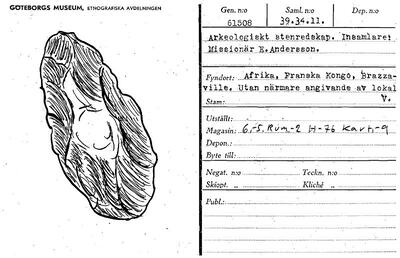 GÖTEBORGS MUSEUM, ETNOGRAFISKA AVDELNINGEN
Gen. n:o Saml. n:o Dep. n:o
61508 39.34.11.
Arkeologiskt stenredskap. Insamlare:
Missionär E. Andersson.
Fyndort: Afrika, Franska Kongo, Brazza-
ville. Utan närmare angivande av lokal
Stam:
Utställt:
Magasin: 6,-5. Rum-2 H-76 Kart-9
Depon.:
Byte till:
Negat. n:o Teckn. n:o
Skiopt. „ Kliché „
Publ.: